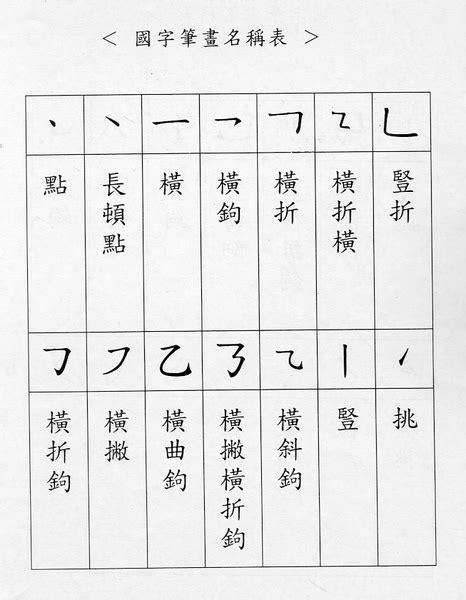 < 國字筆畫名稱表 >
丶 ㇔ 一 乛 ㇕ ㇅ ㇗
點
長頓點
橫
橫鉤
橫折
橫折橫
豎折
㇆ ㇇ 乙 ㇡ ㇈ 丨 ㇀
橫折鉤
橫撇
橫曲鉤
橫撇橫折鉤
橫斜鉤
豎
挑